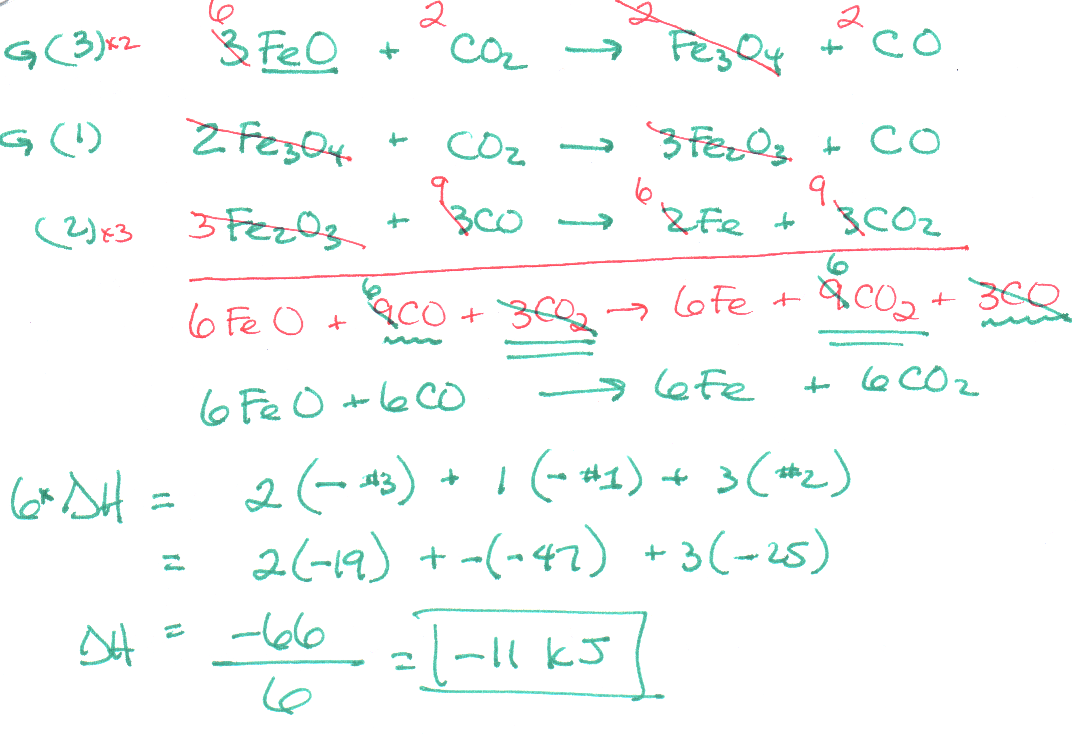 ↺ (3)×2 6 3FeO + 2 CO₂ → 2 Fe₃O₄ + 2 CO
↺ (1) 2Fe₃O₄ + CO₂ → 3Fe₂O₃ + CO
(2)×3 3Fe₂O₃ + 9 3CO → 6 2Fe + 9 3CO₂
6FeO + 6 9CO + 3CO₂ → 6Fe + 6 9CO₂ + 3CO
6FeO + 6CO → 6Fe + 6CO₂
6*ΔH = 2(-#3) + 1(-#1) + 3(#2)
= 2(-19) + -(-47) + 3(-25)
ΔH = -66/6 = -11 kJ